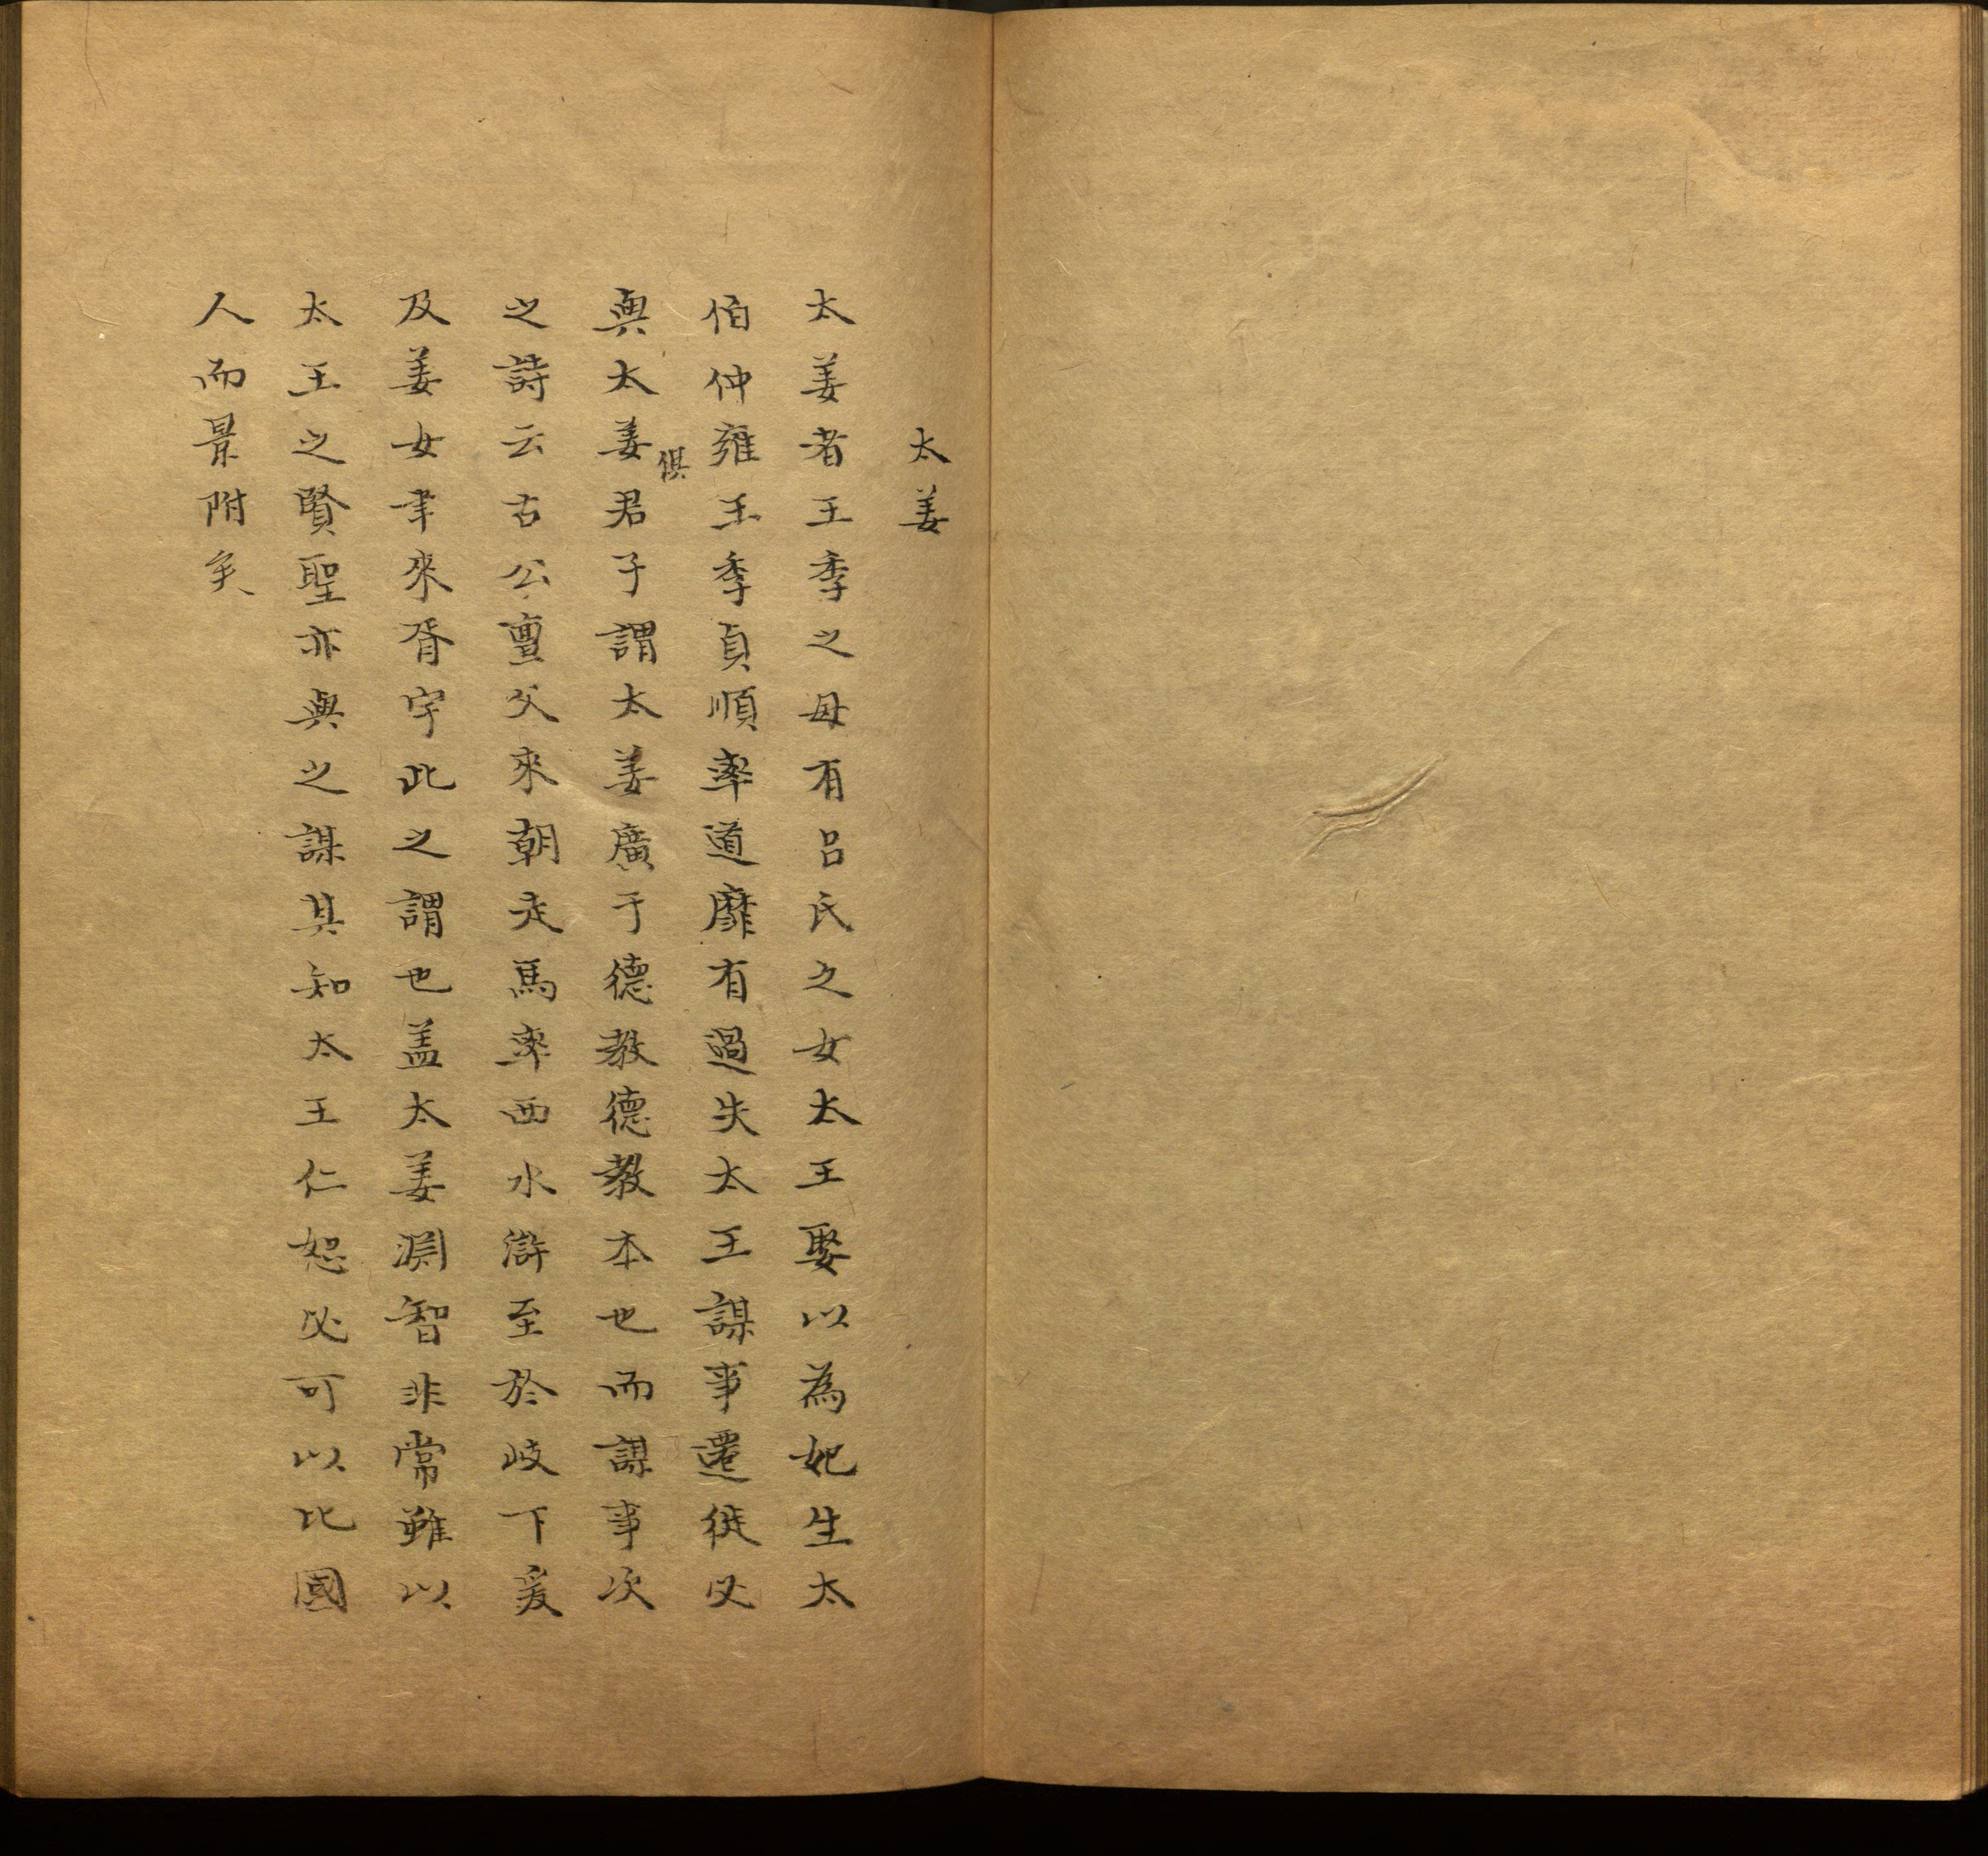 太姜
太姜者王季之母有呂氏之女太王娶以為妃生太
伯仲雍王季貞順率道靡有過失太王謀事遷徙必
與太姜俱君子謂太姜廣于德教德教本也而謀事次
之詩云古公亶父來朝走馬率西水滸至於岐下爰
及姜女聿來胥宇此之謂也盖太姜淵智非常雖以
太王之賢聖亦與之謀其知太王仁恕必可以比國
人而景附矣